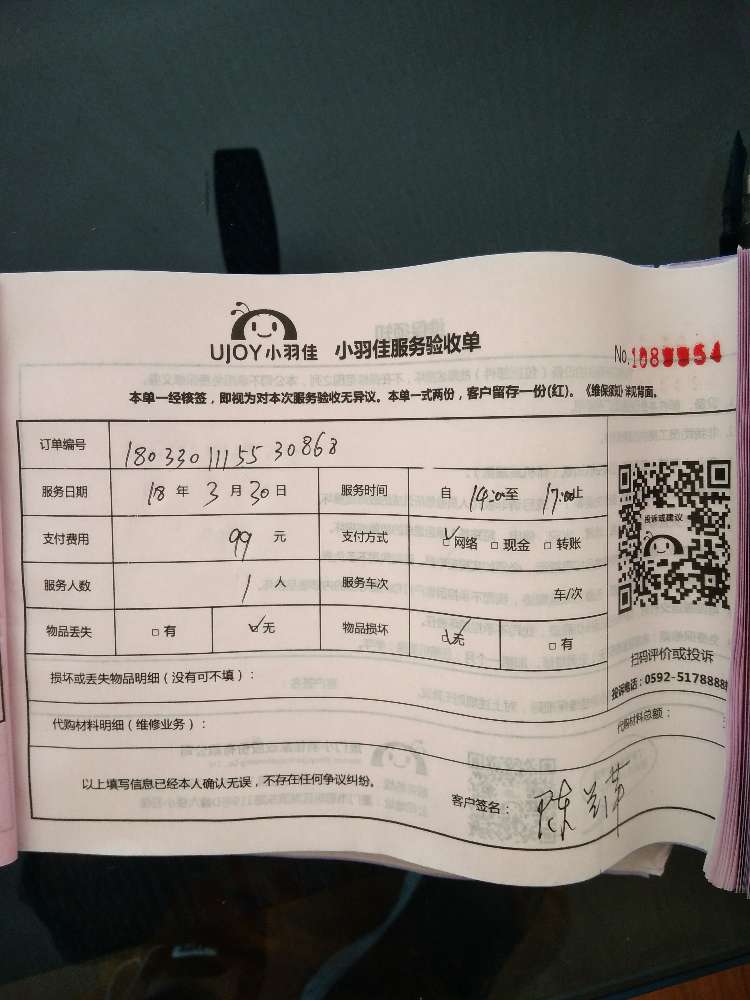 UJOY小羽佳 小羽佳服务验收单
本单一经核签，即视为对本次服务验收无异议。本单一式两份，客户留存一份(红)。《维保须知》详见背面。
订单编号 18033011553086
服务日期 18 年 3 月 30 日 服务时间 自 14:00至 17:00止
支付费用 99 元 支付方式 ☑网络 □现金 □转账
投诉或建议
服务人数 1 人 服务车次 车/次
物品丢失 □有 ☑无 物品损坏 ☑无 □有
扫码评价或投诉
损坏或丢失物品明细（没有可不填）：
投诉电话：0592-5178888
代购材料明细（维修业务）：
代购材料总额：
以上填写信息已经本人确认无误，不存在任何争议纠纷。
客户签名：陈